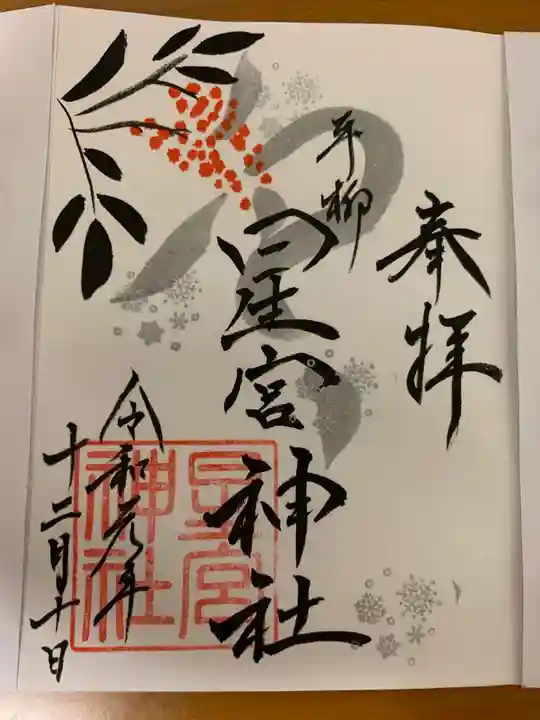 奉拝
平柳
星宮神社
令和元年
十二月十日
星宮
神社